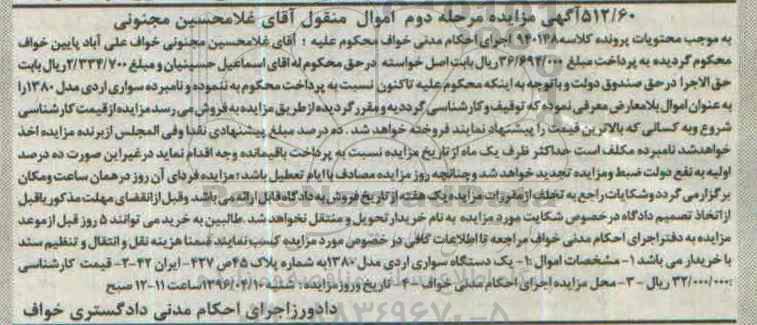 ۵۱۲/۶۰آگهی مزایده مرحله دوم اموال منقول آقای غلامحسین مجنونی
به موجب محتویات پرونده کلاسه۹۴۰۱۴۸ اجرای احکام مدنی خواف محکوم علیه : آقای غلامحسین مجنونی خواف علی آباد پایین خواف
محکوم گردیده به پرداخت مبلغ ۳۶/۶۹۴/۰۰۰ریال بابت اصل خواسته درحق محکوم له آقای اسماعیل حسینیان و مبلغ ۲/۳۳۴/۷۰۰ریال بابت
حق الاجرا درحق صندوق دولت وباتوجه به اینکه محکوم علیه تاکنون نسبت به پرداخت محکوم به ننموده و نامبرده سواری اردی مدل ۱۳۸۰را
به عنوان اموال بلامعارض معرفی نموده که توقیف وکارشناسی گردیدیه ومقرر گردیده ازطریق مزایده به فروش می رسد مزایده ازقیمت کارشناسی
شروع وبه کسانی که بالاترین قیمت را پیشنهاد نمایند فروخته خواهد شد . ده درصد مبلغ پیشنهادی نقدا وفی المجلس ازبرنده مزایده اخذ
خواهدشد نامبرده مکلف است حداکثر ظرف یک ماه ازتاریخ مزایده نسبت به پرداخت باقیمانده وجه اقدام نماید درغیراین صورت ده درصد
اولیه به نفع دولت ضبط ومزایده تجدید خواهد شد وچنانچه روز مزایده مصادف باایام تعطیل باشد؛مزایده فردای آن روز درهمان ساعت ومکان
برگزارمی گردد وشکایات راجع به تخلف ازمقررات مزایده یک هفته ازتاریخ فروش به دادگاه قابل ارائه می باشد وقبل ازانقضای مهلت مذکوریاقبل
ازاتخاذ تصمیم دادگاه درخصوص شکایت مورد مزایده به نام خریدارتحویل و منتقل نخواهد شد .طالبین به خرید می توانند ۵ روز قبل ازموعد
مزایده به دفتراجرای احکام مدنی خواف مراجعه تااطلاعات کافی در خصوص مورد مزایده کسب نمایند ضمنا هزینه نقل و انتقال و تنظیم سند
با خریدار می باشد ۱- مشخصات اموال :۱- یک دستگاه سواری اردی مدل ۱۳۸۰به شماره پلاک ۴۵ص ۴۲۷- ایران ۴۲-۲- قیمت کارشناسی
:۳۲/۰۰۰/۰۰۰ ریال - ۳- محل مزایده اجرای احکام مدنی خواف -۴- تاریخ وروزمزایده : شنبه ۱۳۹۶/۰۴/۱۰ساعت ۱۱-۱۲ صبح
دادورزاجرای احکام مدنی دادگستری خواف